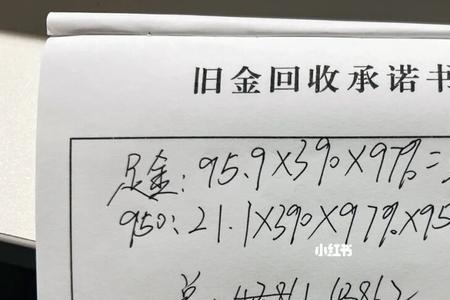 旧金回收承诺书
足金:95.9×390×97%=
950:21.1×390×97%×95
小红书
总